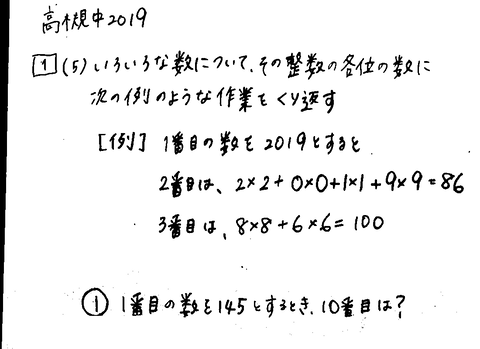 高槻中2019
1 (5) いろいろな数について、その整数の各位の数に
次の例のような作業をくり返す
[例] 1番目の数を2019とすると
2番目は、2×2+0×0+1×1+9×9=86
3番目は、8×8+6×6=100
① 1番目の数を145とするとき、10番目は?